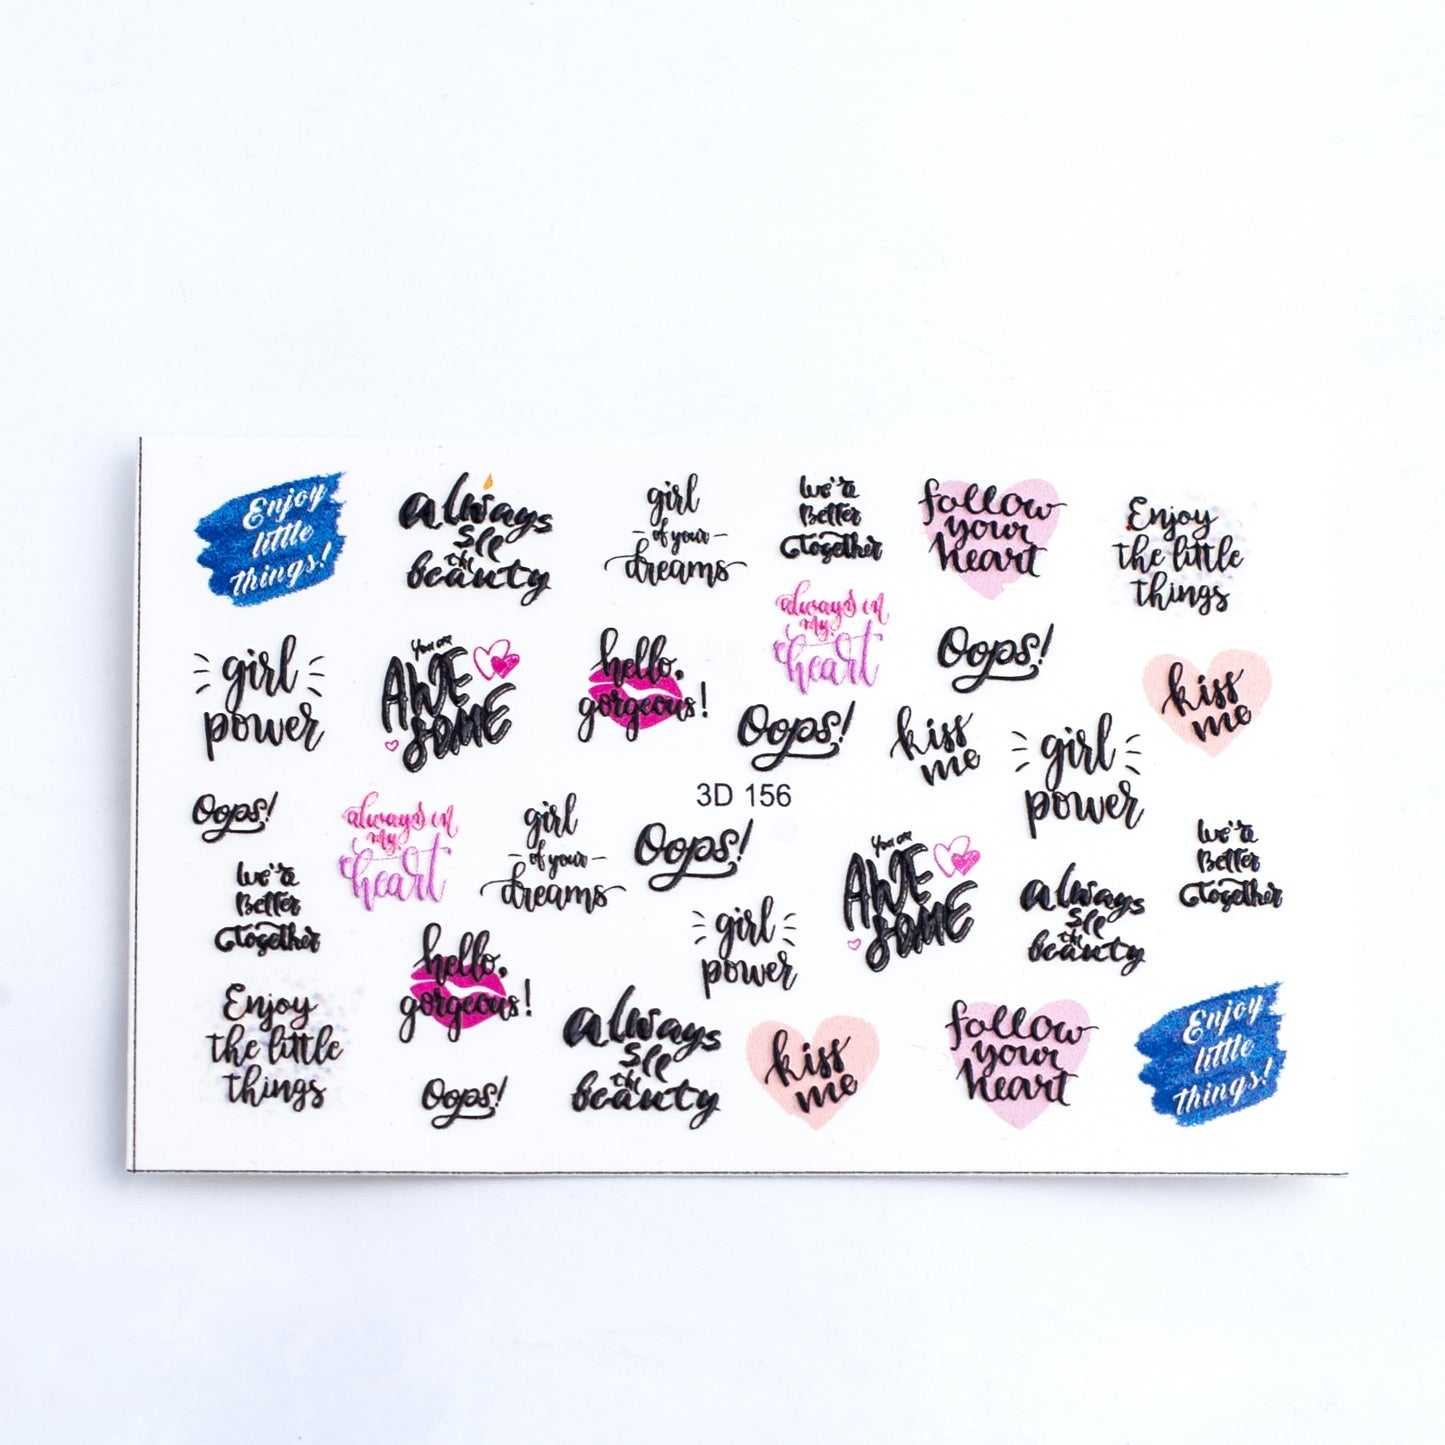 Enjoy
little
things!
always
see
the
beauty
girl
of your
dreams
We're
Better
Together
follow
your
heart
Enjoy
the little
things
girl
power
You are
AWE
SOME
hello,
gorgeous!
always in
my
heart
Oops!
Oops!
kiss
me
kiss
me
girl
power
3D 156
Oops!
always in
my
heart
girl
of your
dreams
Oops!
You are
AWE
SOME
We're
Better
Together
We're
Better
Together
hello,
gorgeous!
girl
power
always
see
the
beauty
Enjoy
the little
things
Oops!
always
see
the
beauty
kiss
me
follow
your
heart
Enjoy
little
things!